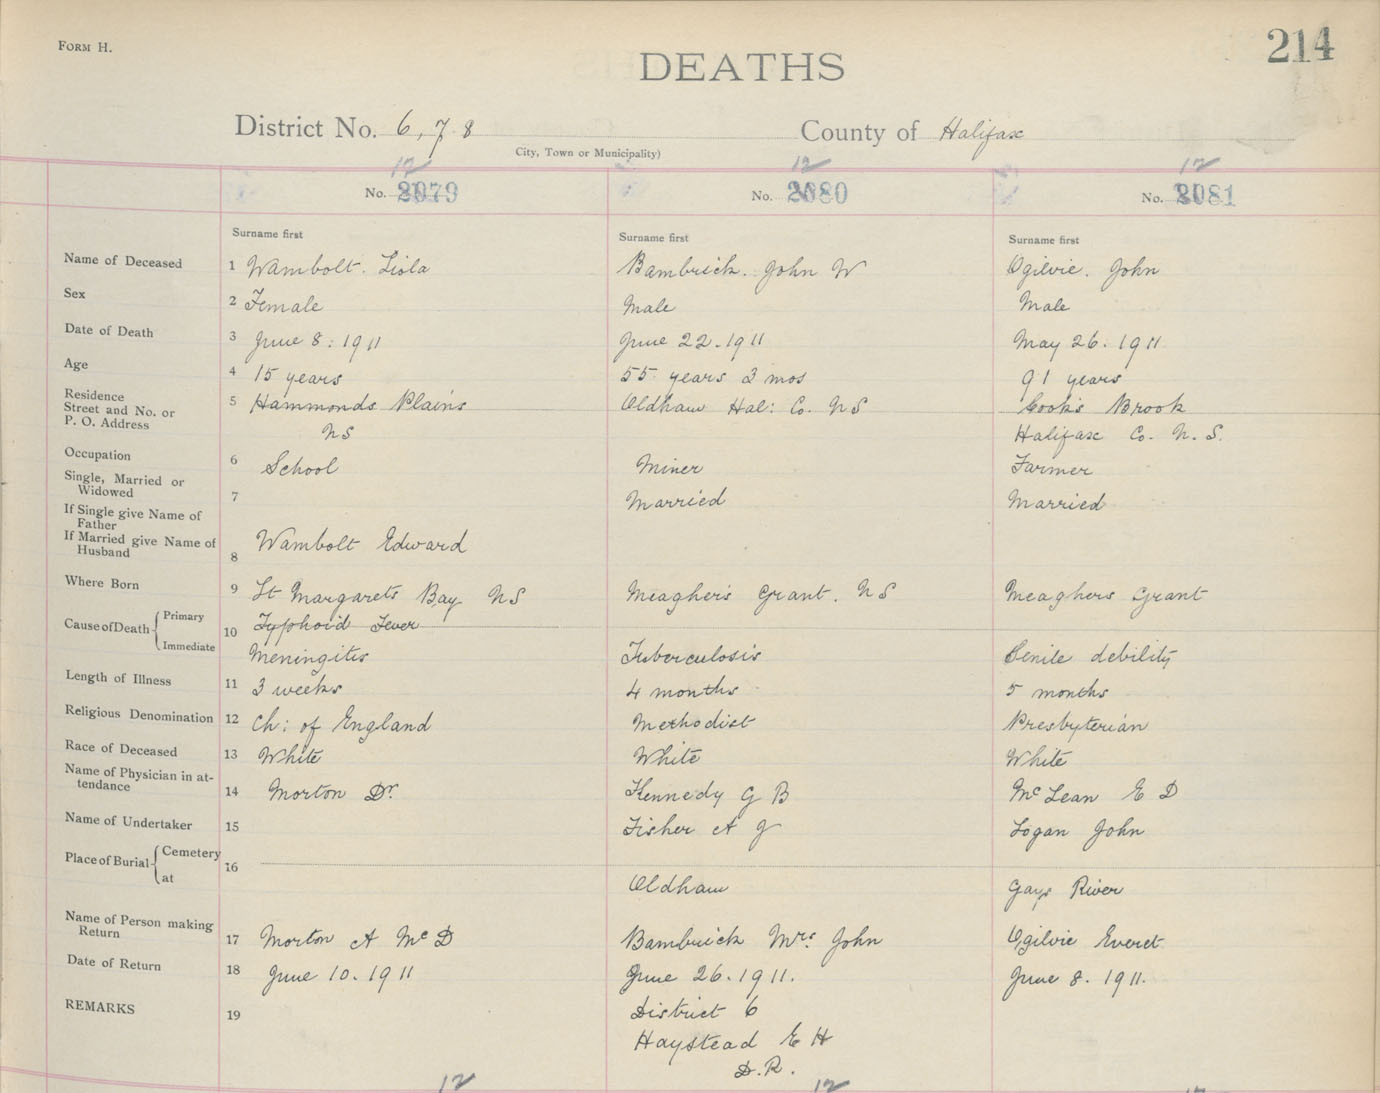 FORM H.
214
DEATHS
District No. 6, 7 8 County of Halifax
City, Town or Municipality)
12 12 12
No. 2079 No. 2080 No. 2081
Surname first Surname first Surname first
Name of Deceased 1 Wambolt. Liola Bambrick. John W Ogilvie. John
Sex 2 Female Male Male
Date of Death 3 June 8: 1911 June 22. 1911 May 26. 1911
Age 4 15 years 55 years 3 mos 91 years
Residence
Street and No. or
P. O. Address 5 Hammonds Plains Oldham Hal: Co. NS Cooks Brook
NS Halifax Co. N. S.
Occupation 6 School Miner Farmer
Single, Married or
Widowed 7 Married Married
If Single give Name of
Father
If Married give Name of
Husband 8 Wambolt Edward
Where Born 9 St Margarets Bay NS Meaghers Grant. NS Meaghers Grant
Cause of Death Primary 10 Typhoid Fever
Immediate Meningites Tuberculosis Senile debility
Length of Illness 11 3 weeks 4 months 5 months
Religious Denomination 12 Ch: of England Methodist Presbyterian
Race of Deceased 13 White White White
Name of Physician in at-
tendance 14 Morton Dr. Kennedy G B McLean E D
Name of Undertaker 15 Fisher A J Logan John
Place of Burial Cemetery 16
at Oldham Gays River
Name of Person making
Return 17 Morton A McD Bambrick Mrs. John Ogilvie Everet
Date of Return 18 June 10. 1911 June 26. 1911. June 8. 1911.
REMARKS 19 District 6
Haystead E H
D. R.
12 12